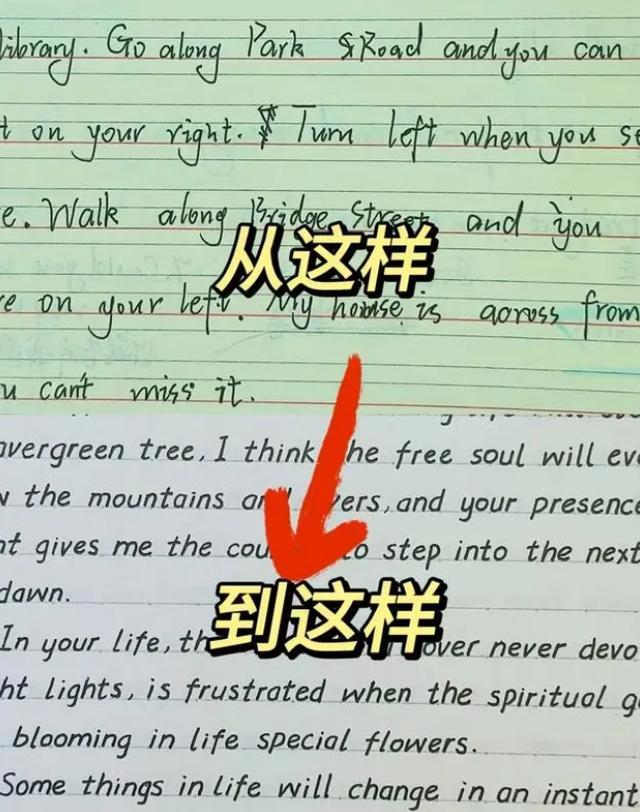 library. Go along Park & Road and you can
t on your right. Turn left when you se
e. Walk along Bridge Street and you
从这样
e on your left. My house is across from
u can't miss it.
evergreen tree, I think he free soul will eve
w the mountains an ers, and your presence
ht gives me the cou to step into the next
dawn.
到这样
In your life, th over never devo
ht lights, is frustrated when the spiritual g
blooming in life special flowers.
Some things in life will change in an instant